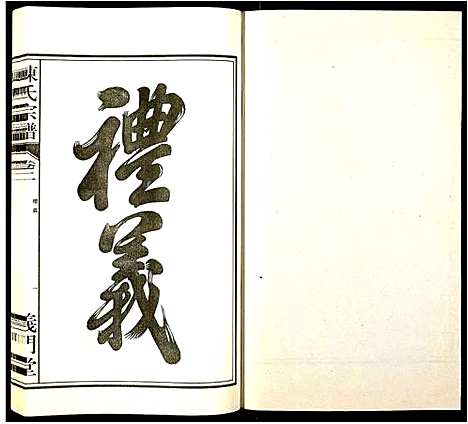 禮義
陳氏宗譜
卷二
禮義
一
義門堂